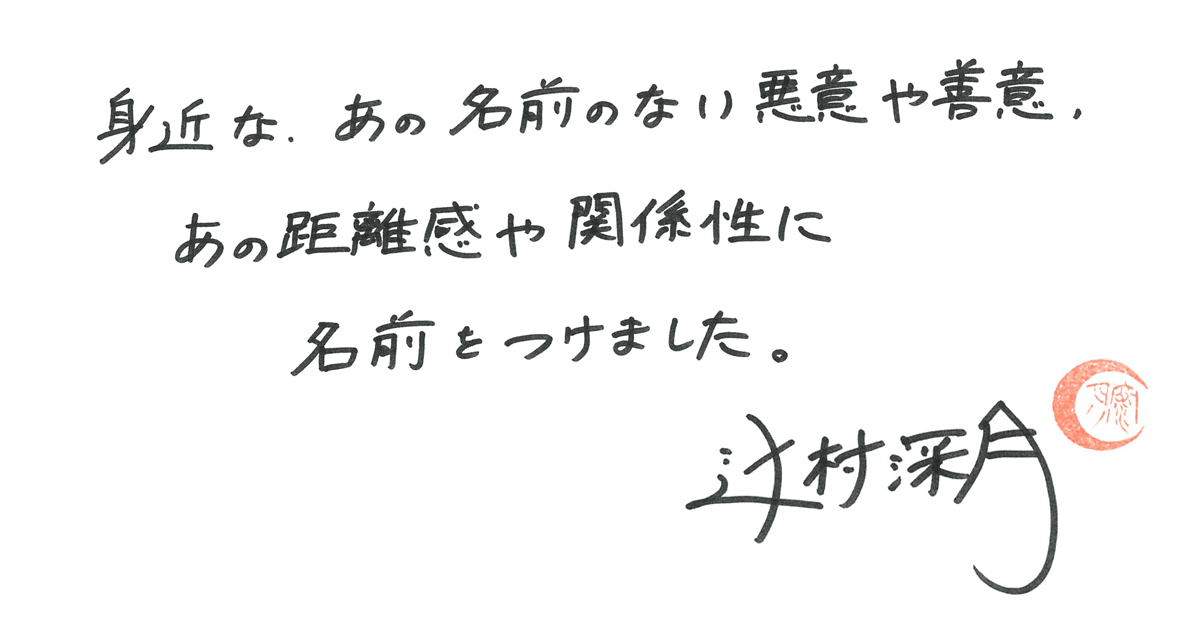 身近な、あの名前のない悪意や善意、
あの距離感や関係性に
名前をつけました。
辻村深月